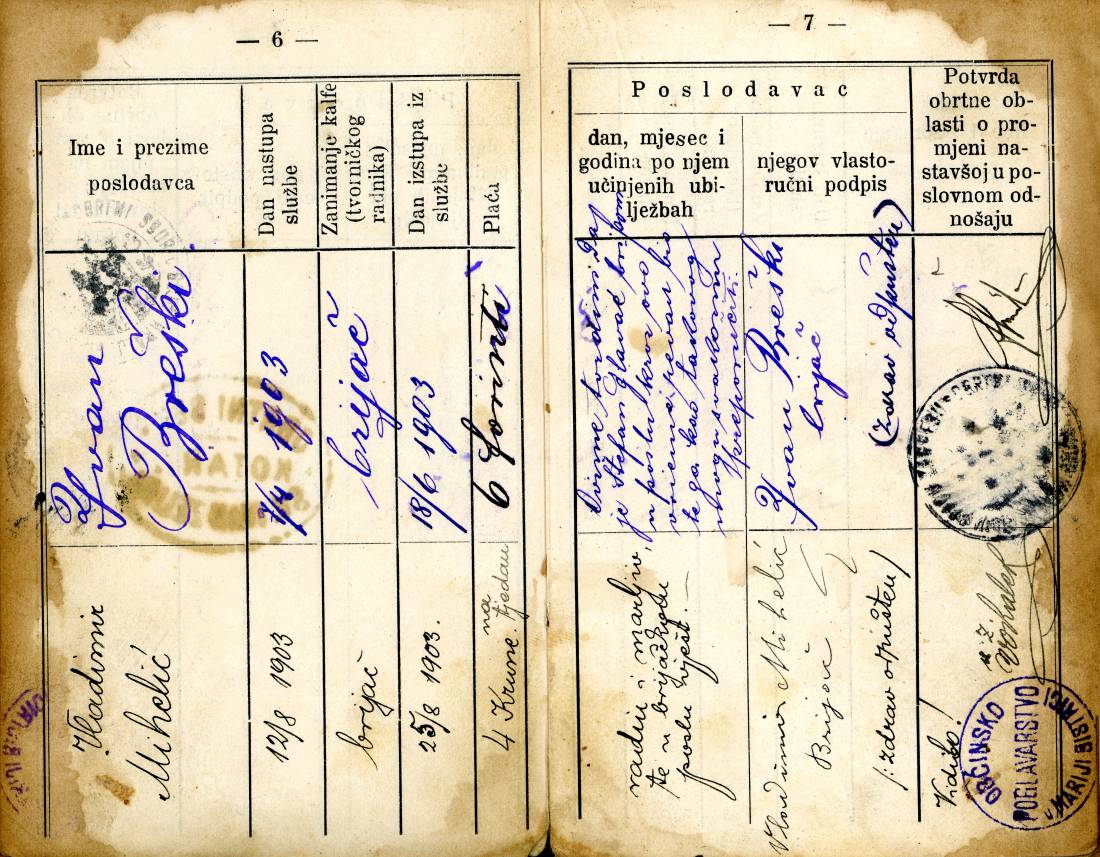 — 6 —
Ime i prezime
poslodavca
Dan nastupa
službe
Zanimanje kalfe
(tvorničkog
radnika)
Dan izstupa iz
službe
Plaća
Ivan
Breški
7/4 1903
brijač
18/6 1903
6 forinti
Vladimir
Mihelić
12/8 1903
brijač
25/8 1903.
4 Krune na
tjedan
— 7 —
Poslodavac
dan, mjesec i
godina po njem
učinjenih ubi-
lježbah
njegov vlasto-
ručni podpis
Potvrda
obrtne ob-
lasti o pro-
mjeni na-
stavšoj u po-
slovnom od-
nošaju
Ovime tvrdim da
je Štefan Glavač
u poslu kroz ovo
vrieme bio
te ga kao takovog
mogu svakomu
preporučiti
Ivan Breški
brijač
(zdrav odpušten)
radin i marljiv,
te u brijačkom
poslu vješt. —
Vladimir Mihelić
Brijač
/: zdrav otpušten /
Vidio!
OBĆINSKO
POGLAVARSTVO
U MARIJI BISTRICI